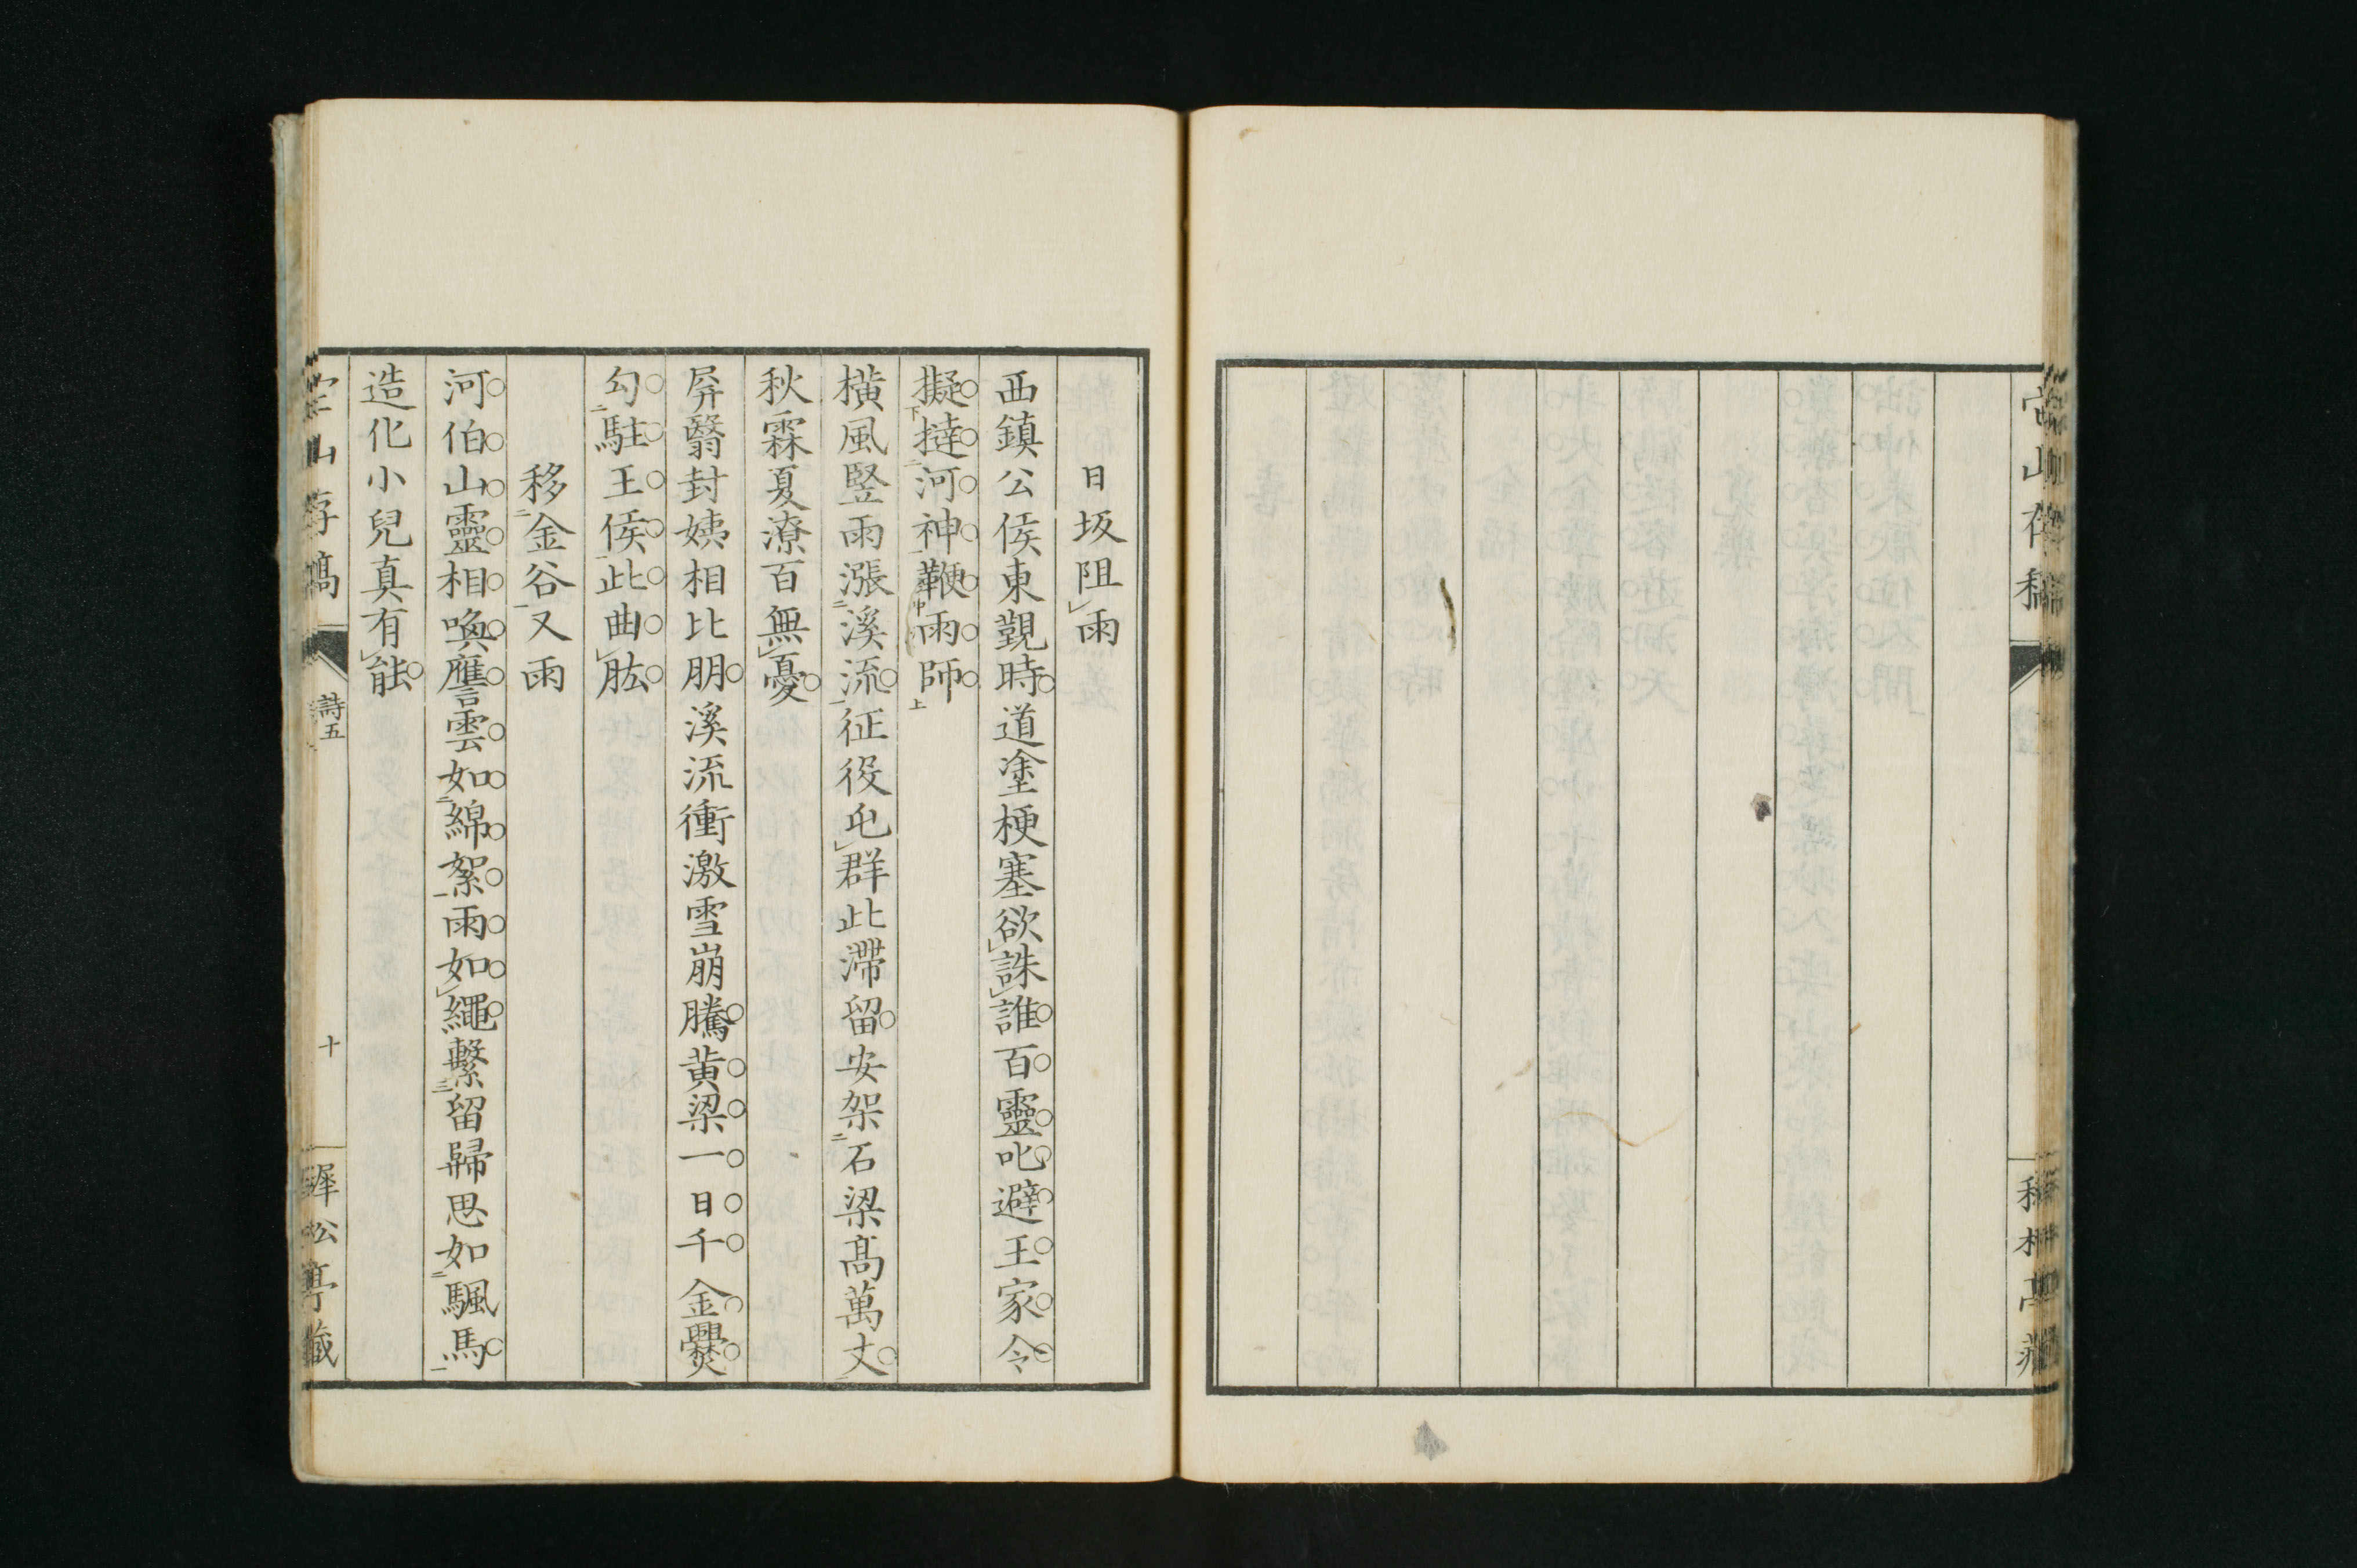 日坂阻雨
西鎮公侯東覲時道塗梗塞欲誅誰百靈叱避王家令
擬撻河神鞭雨師
橫風竪雨漲溪流征役乇群此滯留安架石梁高萬丈
秋霖夏潦百無憂
屏翳封姨相比朋溪流衝激雪崩騰黄梁一日千金爨
勾駐王侯此曲肱
移金谷又雨
河伯山靈相喚譍雲如綿絮雨如繩繫留歸思如颿馬
造化小兒真有能
詩五
十